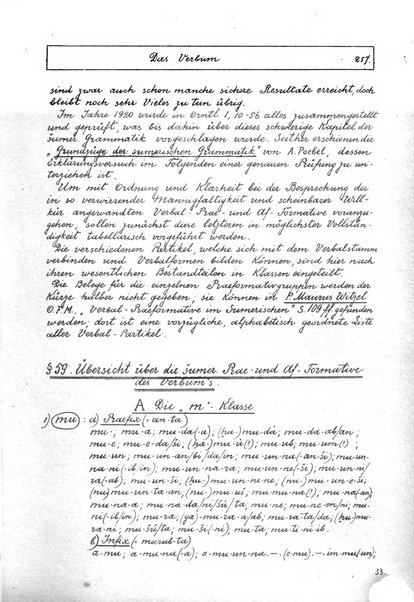 Das Verbum
257.
sind zwar auch schon manche sichere Resultate erreicht, doch
bleibt noch sehr Vieles zu tun übrig.
Im Jahre 1920 wurde in Orntl. 1, 10-56 alles zusammengestellt
und geprüft, was bis dahin über dieses schwierige Kapitel der
sumer. Grammatik vorgeschlagen wurde. Seither erschienen die
„Grundzüge der sumerischen Grammatik" von A. Poebel, dessen
Erklärungsversuch im Folgenden einer genauen Prüfung zu un-
terziehen ist.
Um mit Ordnung und Klarheit bei der Besprechung der
in so verwirrender Mannigfaltigkeit und scheinbarer Will-
kür angewandten Verbal-Prae- und Af-Formative voranzu-
gehen, sollen zunächst diese letzteren in möglichster Vollstän-
digkeit tabellarisch angeführt werden.
Die verschiedenen Partikel, welche sich mit dem Verbalstamm
verbinden und Verbalformen bilden können, sind hier nach
ihren wesentlichen Bestandtailen in Klassen eingeteilt.
Die Belege für die einzelnen Praeformativgruppen werden der
Kürze halber nicht gegeben; sie können in P. Maurus Witzel
O.F.M., „Verbal-Praeformative im Sumerischen" S. 109 ff gefunden
werden; dort ist eine vorzügliche, alphabetisch geordnete Liste
aller Verbal-Partikel.
§ 59. Übersicht über die sumer. Prae- und Af-Formative
des Verbum's.
A. Die „m"-Klasse
1) (mu): a) Praefix (·an-ta)
mu-; mu-a; mu-da(-a); (ha-)mu-da; mu-dda-ab/an;
mu-e; mu-e-da/ši; (ha-)mu-ù(!); mu-ub; mu-um(!);
mu-un; mu-un-an/bi/da/in; mu-un-na(-an/ši); mu-un-
na-ni(-ib/in); mu-un-na-ra; mu-un-ne(-ši); mu-un-ni/
ra(-ab); mu-un-ši; (hu-)mu-un-ne-ne; (nu-)mu-un-e-ši;
(nu)mu-un-ta-en, (nu-)mu-uš, mu-mu-na(!); mu-na(an)
mu-na-a; mu-na-da/ni/šú/ta; mu-ne; mu-ne-en/ni; mu-
ni(-ib/in); mu-ra; (ga)-mu-ra-a/ab; mu-ra-ta/da, (hu-)mu-
ra-ni; mu-šú/ta; mu-ši(-ni); mu-ta; mu-ti(-in).
b) Infix (·murub-ta)
a-mu; a-mu-na(-a); a-mu-un-na. —. (e-mu). —. im-mu(-un);
33